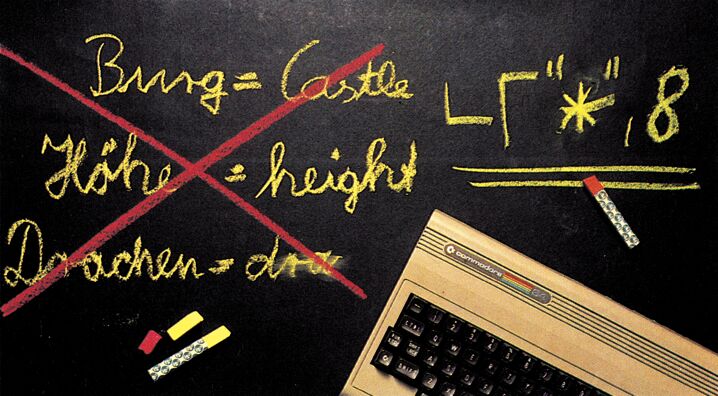 Burg = Castle
Höhe = height
Drachen = dra
L┌"*",8
commodore 64